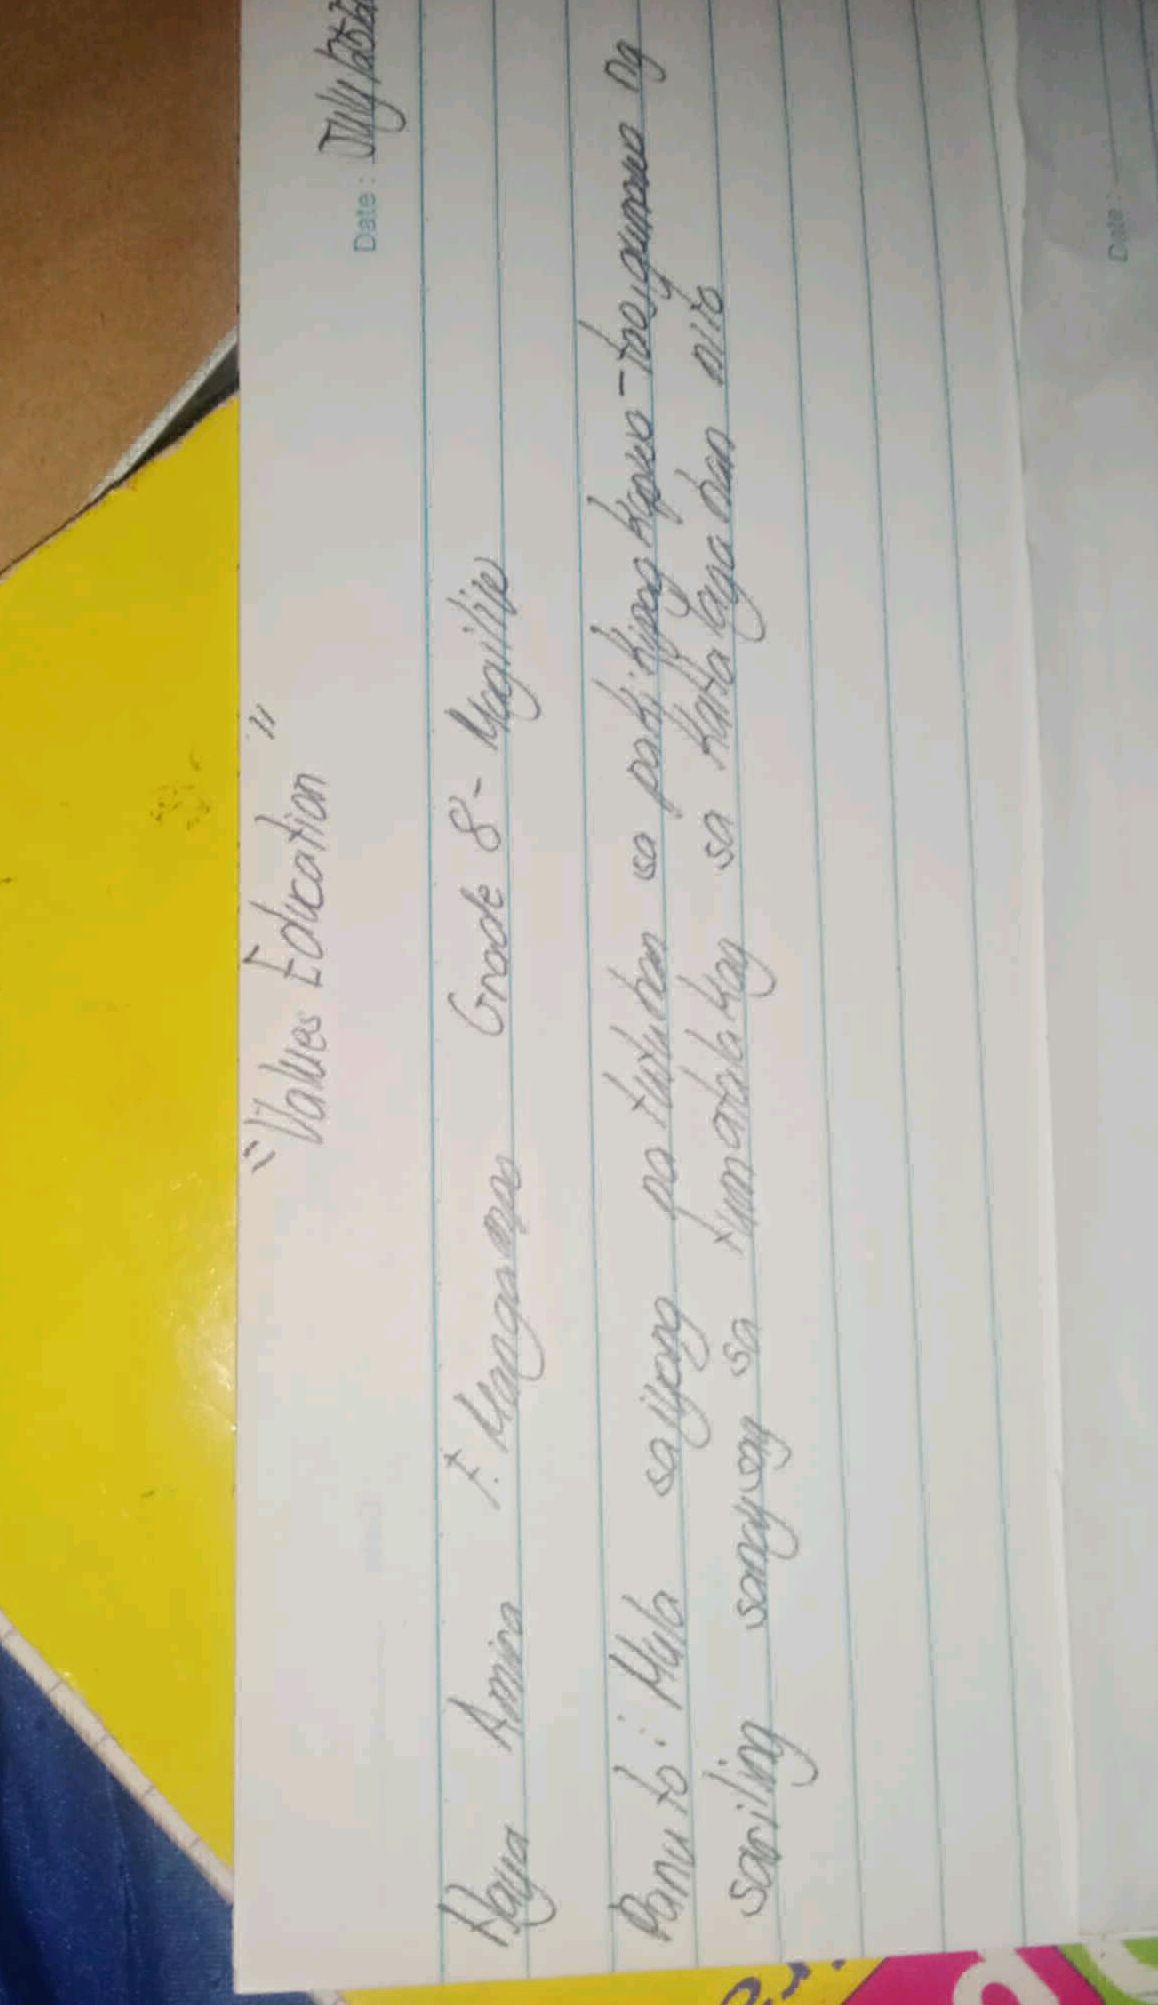 "Values Education"
Date: July
Haya Amira F. Mangarap Grade 8- Magiliw
Panuto: Mula saiyong natutuhan sa pakikipag kapwa-tao, gumawa ng
sariling sanaysay sa tumatalakay sa kahalagahan nito
Date: